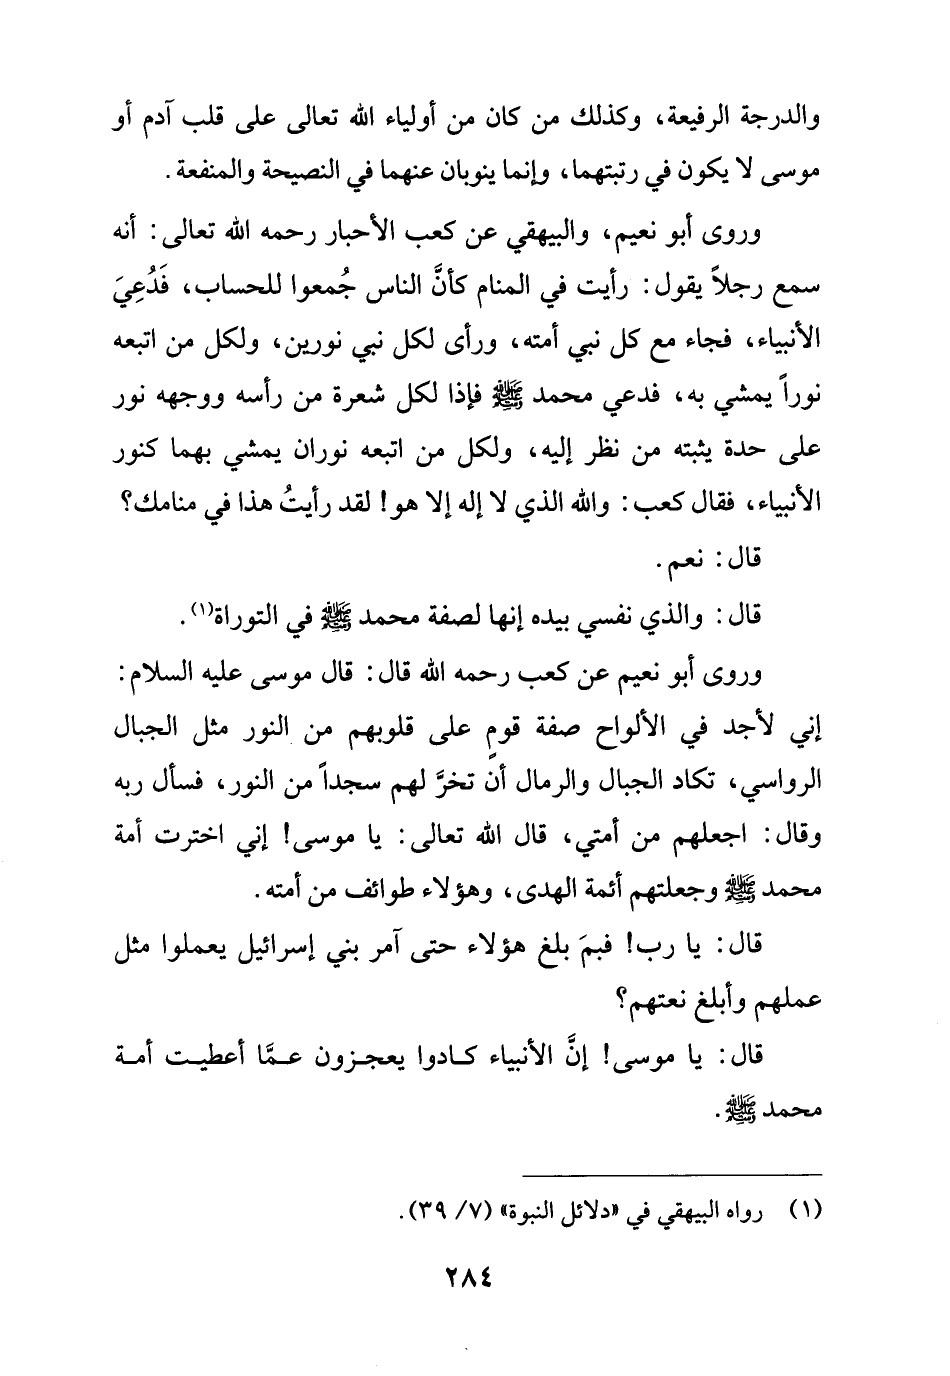 والدرجة الرفيعة، وكذلك من كان من أولياء الله تعالى على قلب آدم أو
موسى لا يكون في رتبتهما، وإنما ينوبان عنهما في النصيحة والمنفعة.
وروى أبو نعيم، والبيهقي عن كعب الأحبار رحمه الله تعالى: أنه
سمع رجلاً يقول: رأيت في المنام كأنَّ الناس جُمعوا للحساب، فَدُعِيَ
الأنبياء، فجاء مع كل نبي أمته، ورأى لكل نبي نورين، ولكل من اتبعه
نوراً يمشي به، فدعي محمد ﷺ فإذا لكل شعرة من رأسه ووجهه نور
على حدة يثبته من نظر إليه، ولكل من اتبعه نوران يمشي بهما كنور
الأنبياء، فقال كعب: والله الذي لا إله إلا هو! لقد رأيتُ هذا في منامك؟
قال: نعم.
قال: والذي نفسي بيده إنها لصفة محمد ﷺ في التوراة(١).
وروى أبو نعيم عن كعب رحمه الله قال: قال موسى عليه السلام:
إني لأجد في الألواح صفة قومٍ على قلوبهم من النور مثل الجبال
الرواسي، تكاد الجبال والرمال أن تخرَّ لهم سجداً من النور، فسأل ربه
وقال: اجعلهم من أمتي، قال الله تعالى: يا موسى! إني اخترت أمة
محمد ﷺ وجعلتهم أئمة الهدى، وهؤلاء طوائف من أمته.
قال: يا رب! فبمَ بلغ هؤلاء حتى آمر بني إسرائيل يعملوا مثل
عملهم وأبلغ نعتهم؟
قال: يا موسى! إنَّ الأنبياء كادوا يعجزون عمَّا أعطيت أمة
محمد ﷺ.
(١) رواه البيهقي في «دلائل النبوة» (٧/ ٣٩).
٢٨٤